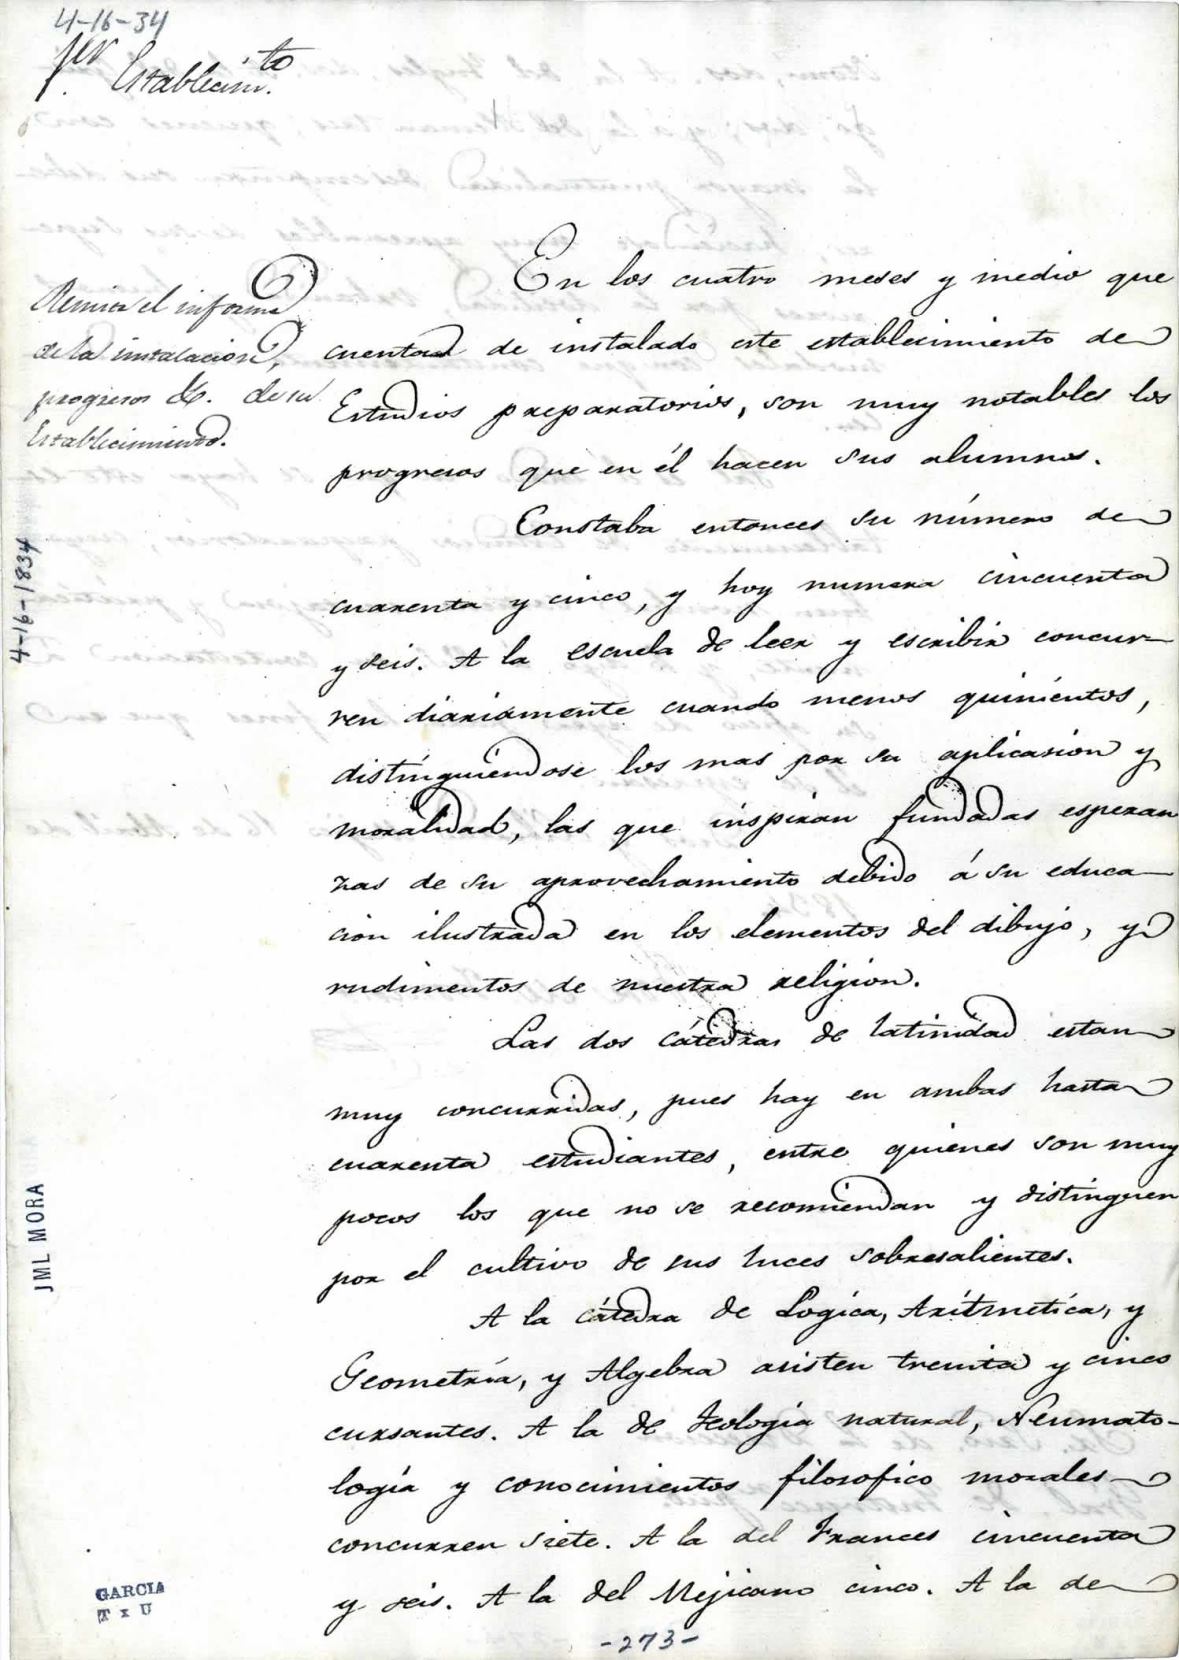 4-16-34
1er Establecim.to
Remite el informe
de la instalacion,
progresos &. de su
Establecimiento.
4-16-1834
En los cuatro meses y medio que
cuenta de instalado este establecimiento de
Estudios preparatorios, son muy notables los
progresos que en él hacen sus alumnos.
Constaba entonces su número de
cuarenta y cinco, y hoy numera cincuenta
y seis. A la escuela de leer y escribir concur-
ren diariamente cuando menos quinientos,
distinguiéndose los mas por su aplicasion y
moralidad, las que inspiran fundadas esperan
zas de su aprovechamiento debido á su educa-
cion ilustrada en los elementos del dibujo, y
rudimentos de nuestra religion.
Las dos cátedras de latinidad estan
muy concurridas, pues hay en ambas hasta
cuarenta estudiantes, entre quienes son muy
pocos los que no se recomiendan y distinguen
por el cultivo de sus luces sobresalientes.
A la cátedra de Logica, Aritmetica, y
Geometría, y Algebra asisten treinta y cinco
cursantes. A la de Teología natural, Neumato-
logía y conocimientos filosofico morales
concurren siete. A la del Frances cincuenta
y seis. A la del Mejicano cinco. A la de
JML MORA
GARCIA
T x U
-273-